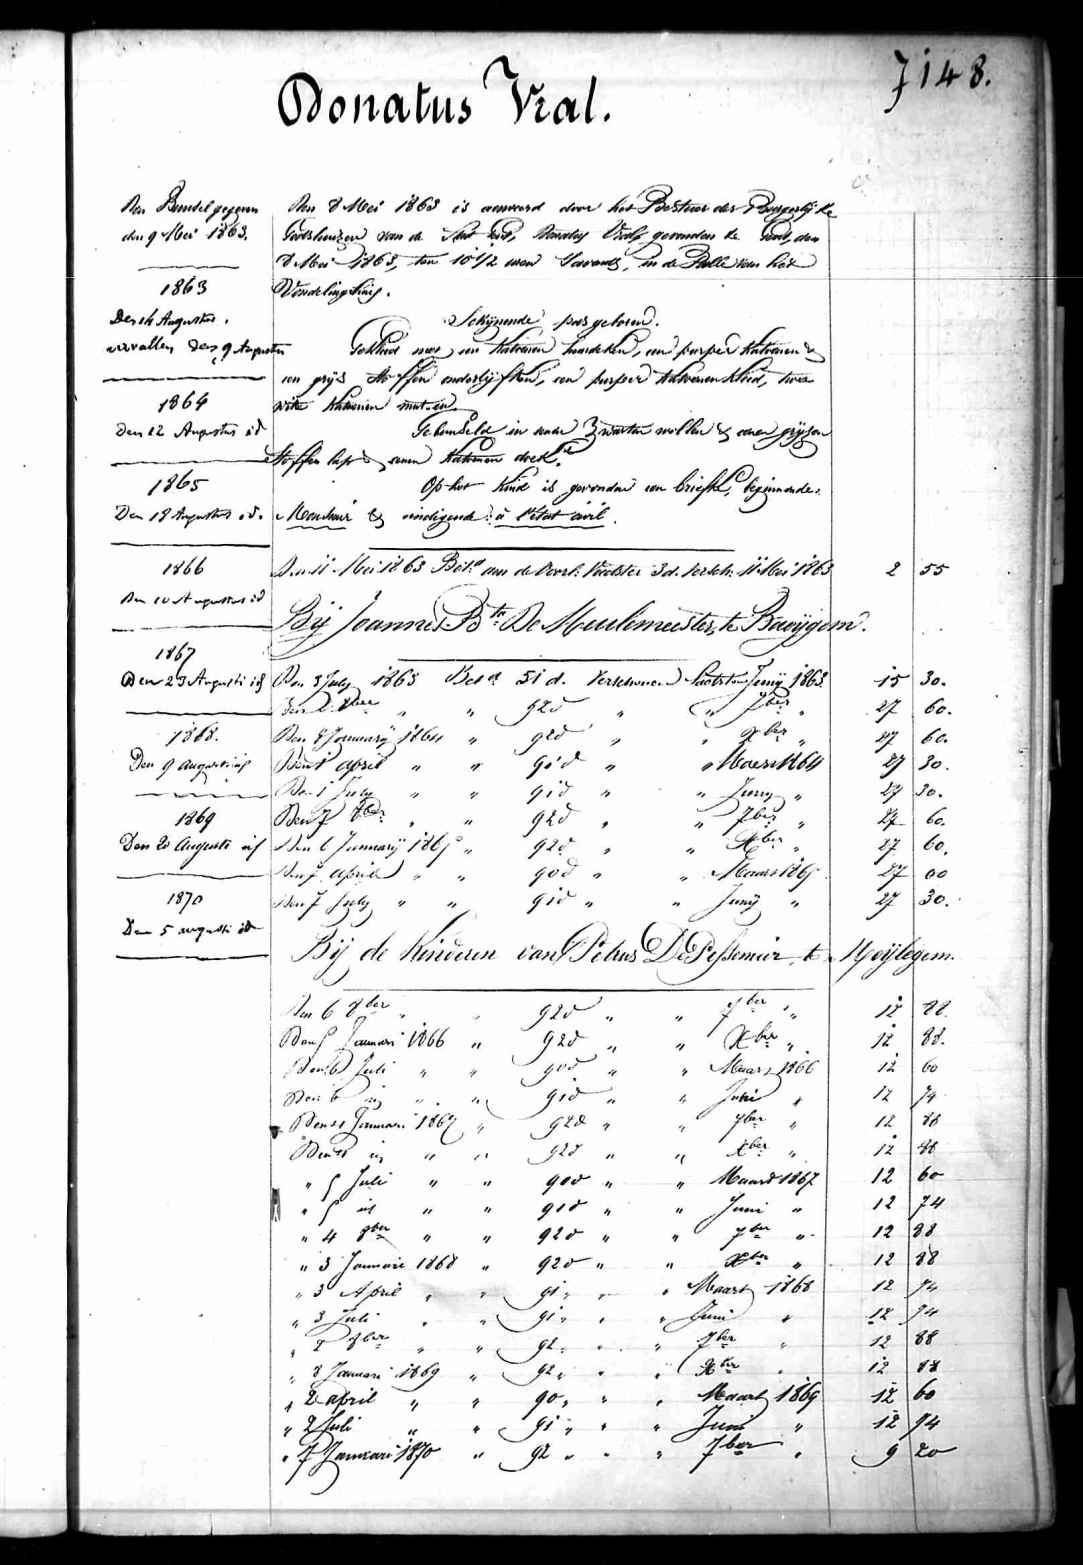 7148.
Donatus Vral.
Den Bundel gegeven
den 9 Mei 1863.
1863
Den 14 Augustus.
vervallen den 9 Augusten
1864
Den 12 Augustus id
1865
Den 18 Augustus id.
1866
Den 10 Augustus id
1867
Den 23 Augusti id
1868.
Den 9 augusti id
1869
Den 20 Augusti id
1870
Den 5 augusti id
Den 8 Mei 1863 is aanveerd door het Bestuur der Burgerlijke
Godshuizen van de Stad Gent, Donatus Vral, gevonden te Gent, den
8 Mei 1863, ten 10 1/2 uren 's avonds, in de Rolle van het
Vondelinghuis.
Schijnende pas geboren.
Gekleed met een katoenen hemdeken, een purper katoenen &
een grijs stoffen onderlijfken, een purper katoenen kleed, twee
witte katoenen mutsen.
Gebundeld in eenen zwarten wollen & eenen grijzen
stoffen lap & eenen katoenen doek.
Op het kind is gevonden een briefke, beginnende:
Monsieur & eindigende: à l'état civil.
Den 11 Mei 1863 Bet.d aan de Voorl. Voedster 3 d. versch. 11 Mei 1863 2 55
Bij Joannes Bte De Meulemeester, te Bavegem.
Den 3 July 1863 Bet.d 51 d. verschenen laatsten Junij 1863 15 30.
Den 2 8ber " " 92 d " " 7ber " 27 60.
Den 8 January 1864 " 92 d " " Xber " 27 60.
Den 1 april " " 91 d " " Maart 1864 27 30.
Den 1 July " " 91 d " " Juny " 27 30.
Den 7 8ber " " 92 d " " 7ber " 27 60.
Den 6 January 1865 " 92 d " " Xber " 27 60.
Den 7 april " " 90 d " " Maart 1865 27 00
Den 7 July " " 91 d " " Junij " 27 30.
Bij de Kinderen van Petrus De Pessemier te Meijlegem.
Den 6 8ber " " 92 d " " 7ber " 12 88.
Den 5 Januari 1866 " 92 d " " Xber " 12 88.
Den 6 Juli " " 90 d " " Maart 1866 12 60
Den 6 id " " 91 d " " Juni " 12 74
Den 11 Januari 1867 " 92 d " " 7ber " 12 88
Den 11 id " " 92 d " " Xber " 12 88
" 5 Juli " " 90 d " " Maart 1867 12 60
" 5 id " " 91 d " " Juni " 12 74
" 4 8ber " " 92 d " " 7ber " 12 88
" 3 Januari 1868 " 92 d " " Xber " 12 88
" 3 April " " 91 " " " Maart 1868 12 74
" 3 Juli " " 91 " " " Juni " 12 74
" 2 8ber " " 92 " " " 7ber " 12 88
" 8 Januari 1869 " 92 " " " Xber " 12 88
" 2 april " " 90 " " " Maart 1869 12 60
" 2 Juli " " 91 " " " Juni " 12 74
" 7 Januari 1870 " 92 " " " 7ber " 9 20